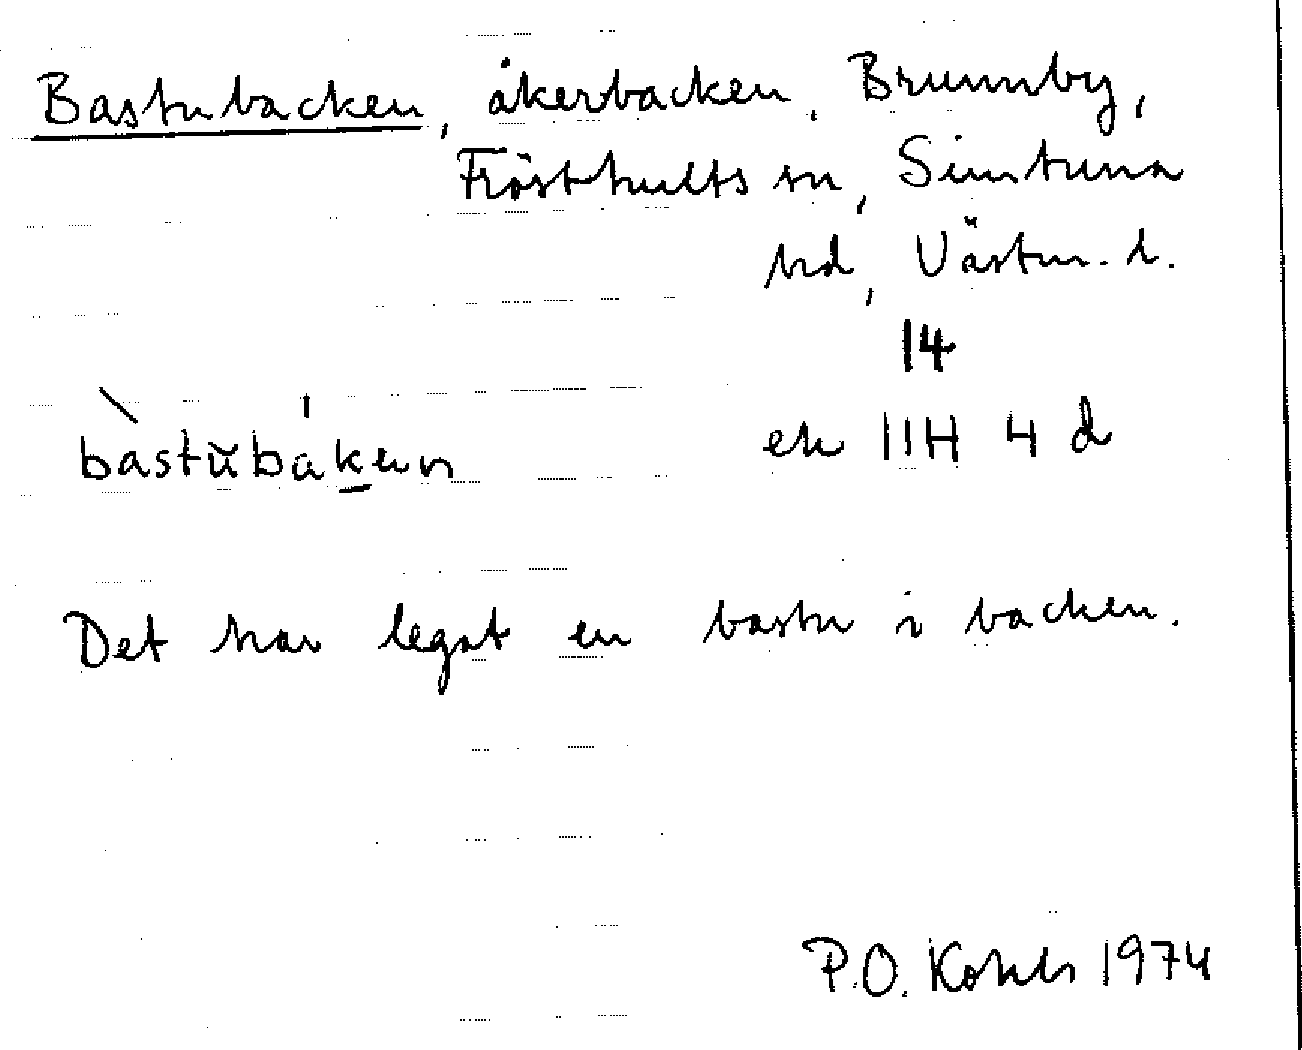 Bastubacken, åkerbacken, Brunnby,
Frösthults sn, Simtuna
hd, Västm. l.
14
bastŭbakən
ek 11H 4 d
Det har legat en bastu i backen.
P.O. 1974